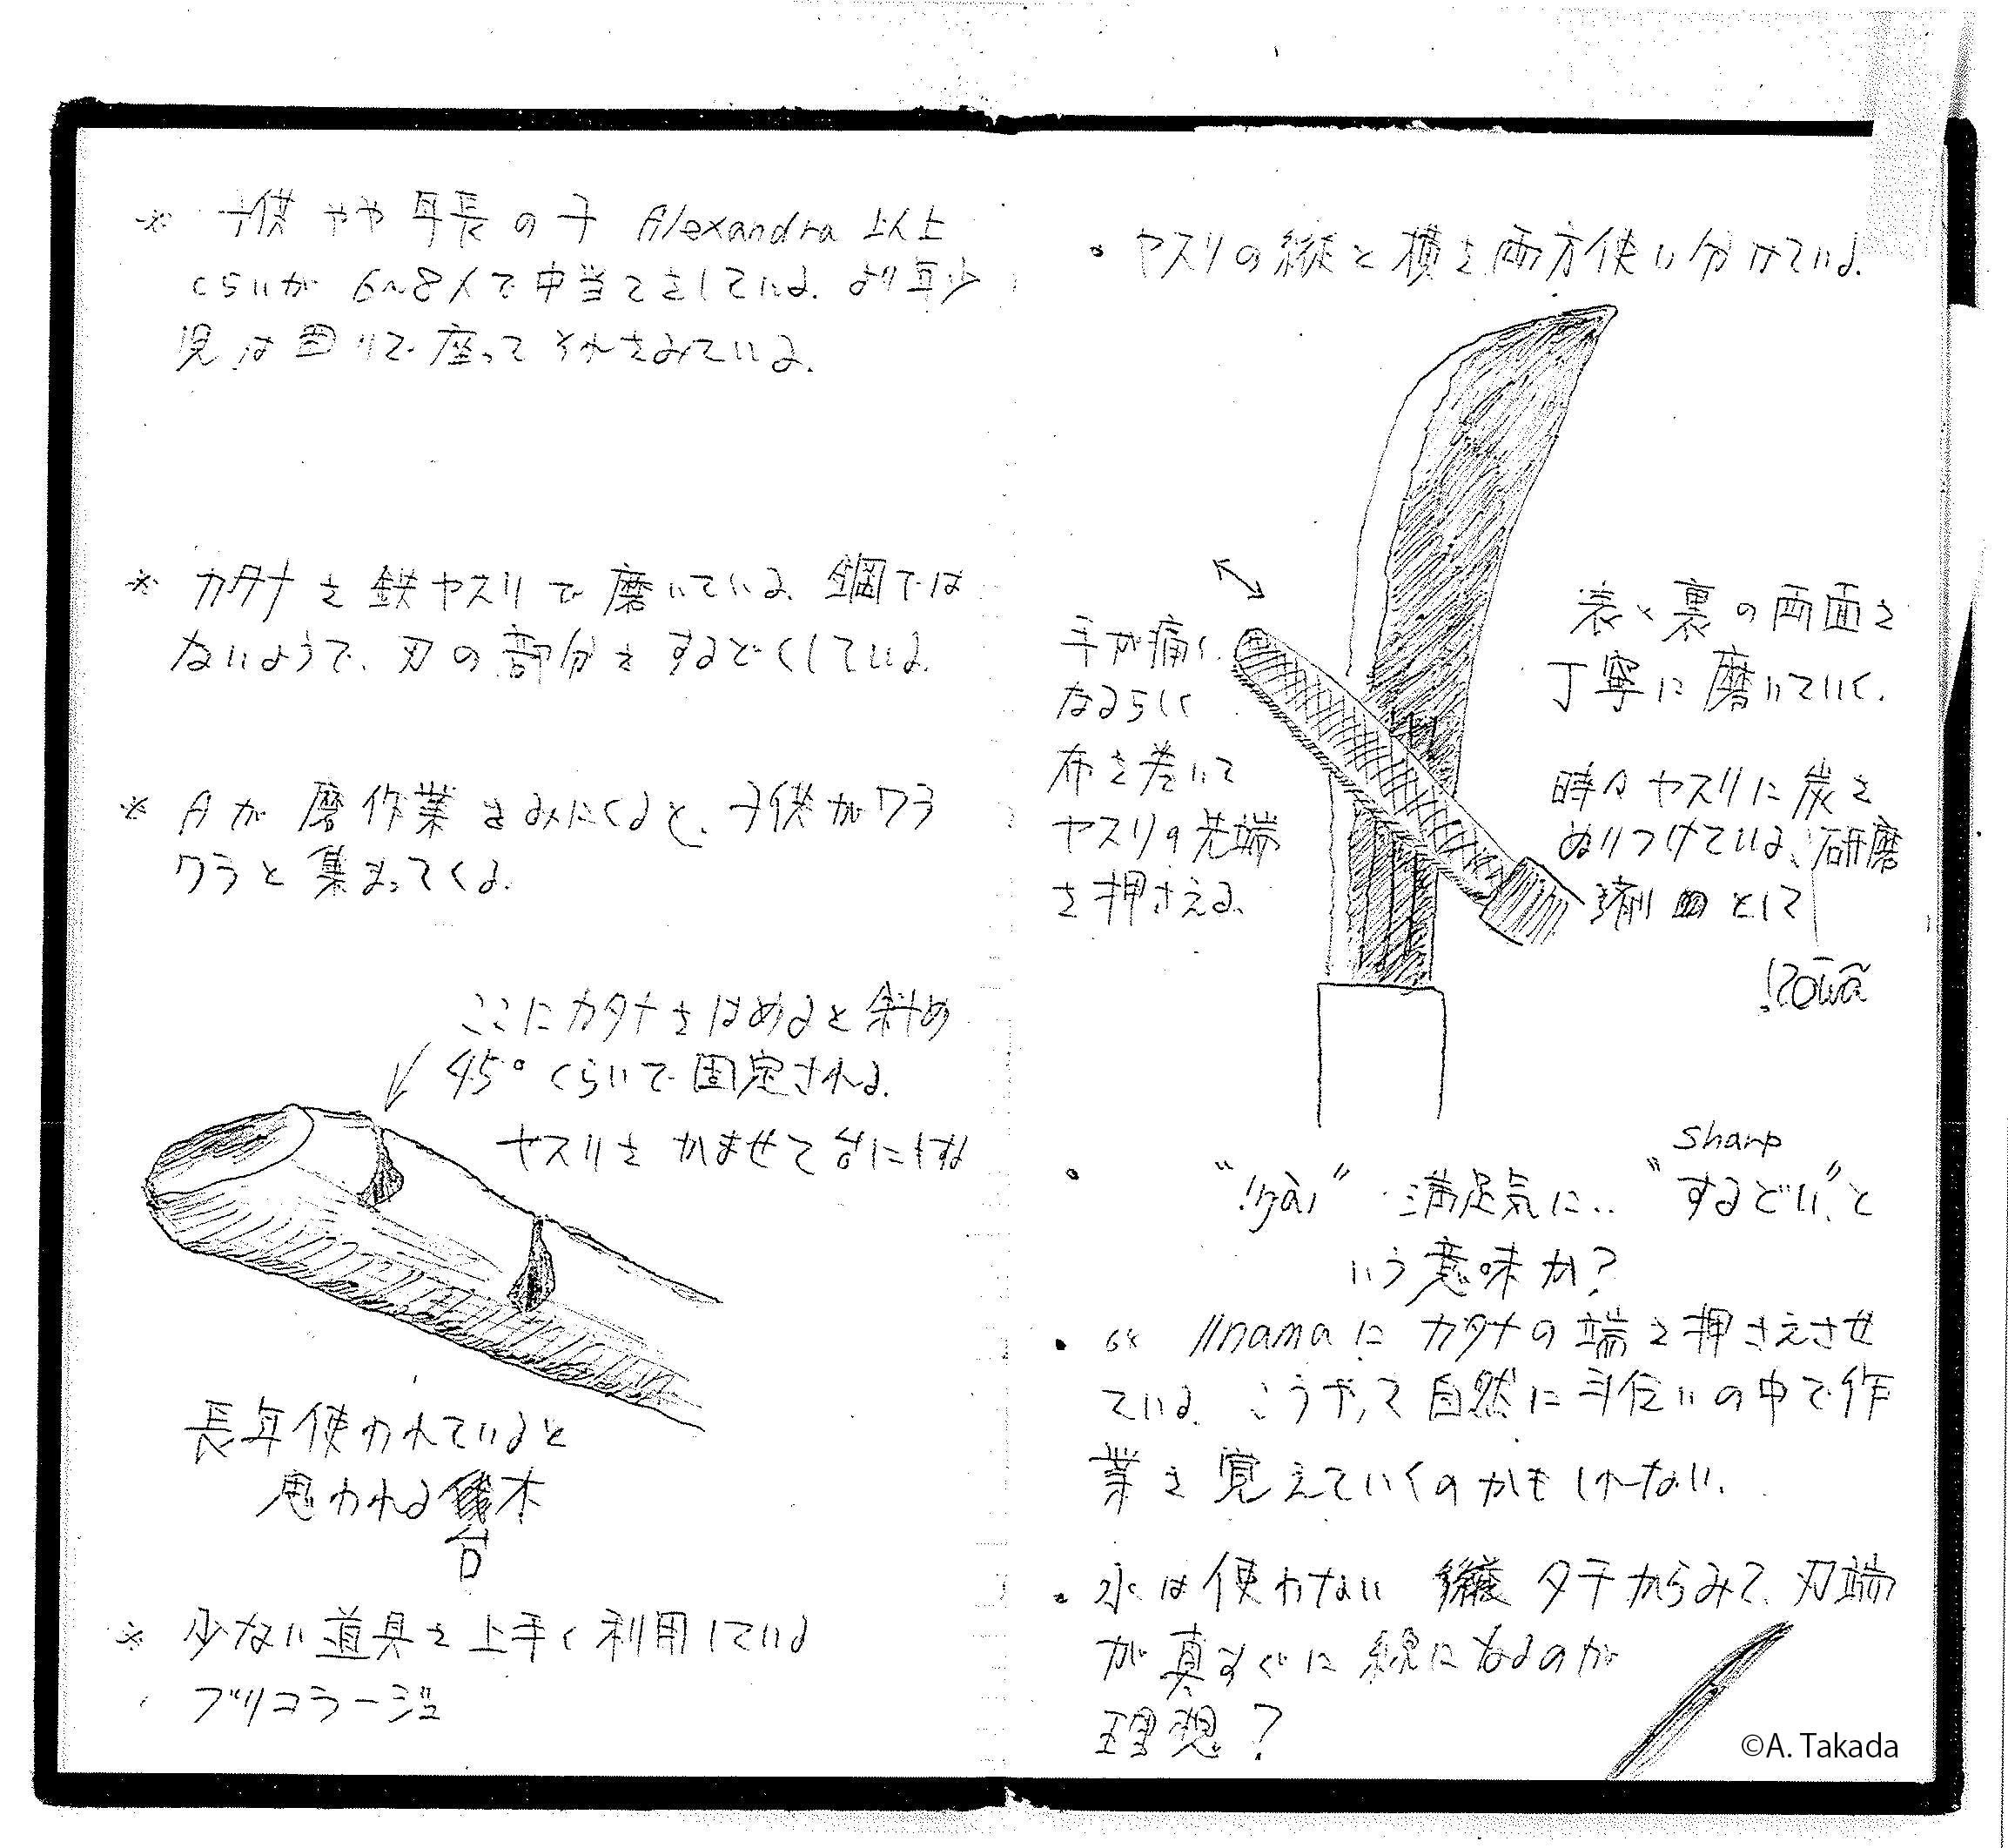 ※ 子供 やや 年長 の子 Alexandra 以上
くらいが 6~8人で中当てをしている. より年少
児は周りで座ってそれをみている.
※ カタナを鉄ヤスリで磨いている. 鋼では
ないようで、刃の部分をするどくしている.
※ Aが磨作業をみにくると、子供がワラ
ワラと集まってくる.
ここにカタナをはめると斜め
45°くらいで固定される.
ヤスリをかませて
長年使われていると
思われる 木
台
※ 少ない道具を上手く利用している
ブリコラージュ
• ヤスリの縦と横を両方使い分けている.
手が痛く
なるらしく
布を巻いて
ヤスリの先端
を押さえる.
表と裏の両面を
丁寧に磨いていく.
時々ヤスリに炭を
ぬりつけている、研磨
剤 として
• 満足気に.. “するどい”と
sharp
いう意味か?
• にカタナの端を押さえさせ
ている. こうやって自然に手伝いの中で作
業を覚えていくのかもしれない.
• 水は使わない タテからみて、刃端
が真すぐに線になるのが
理想?
©A. Takada